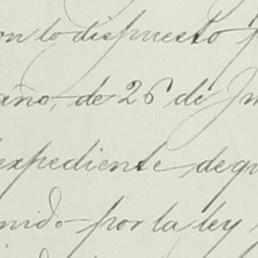 on lo dispuesto
año, de 26 de
expediente de
nido por la ley